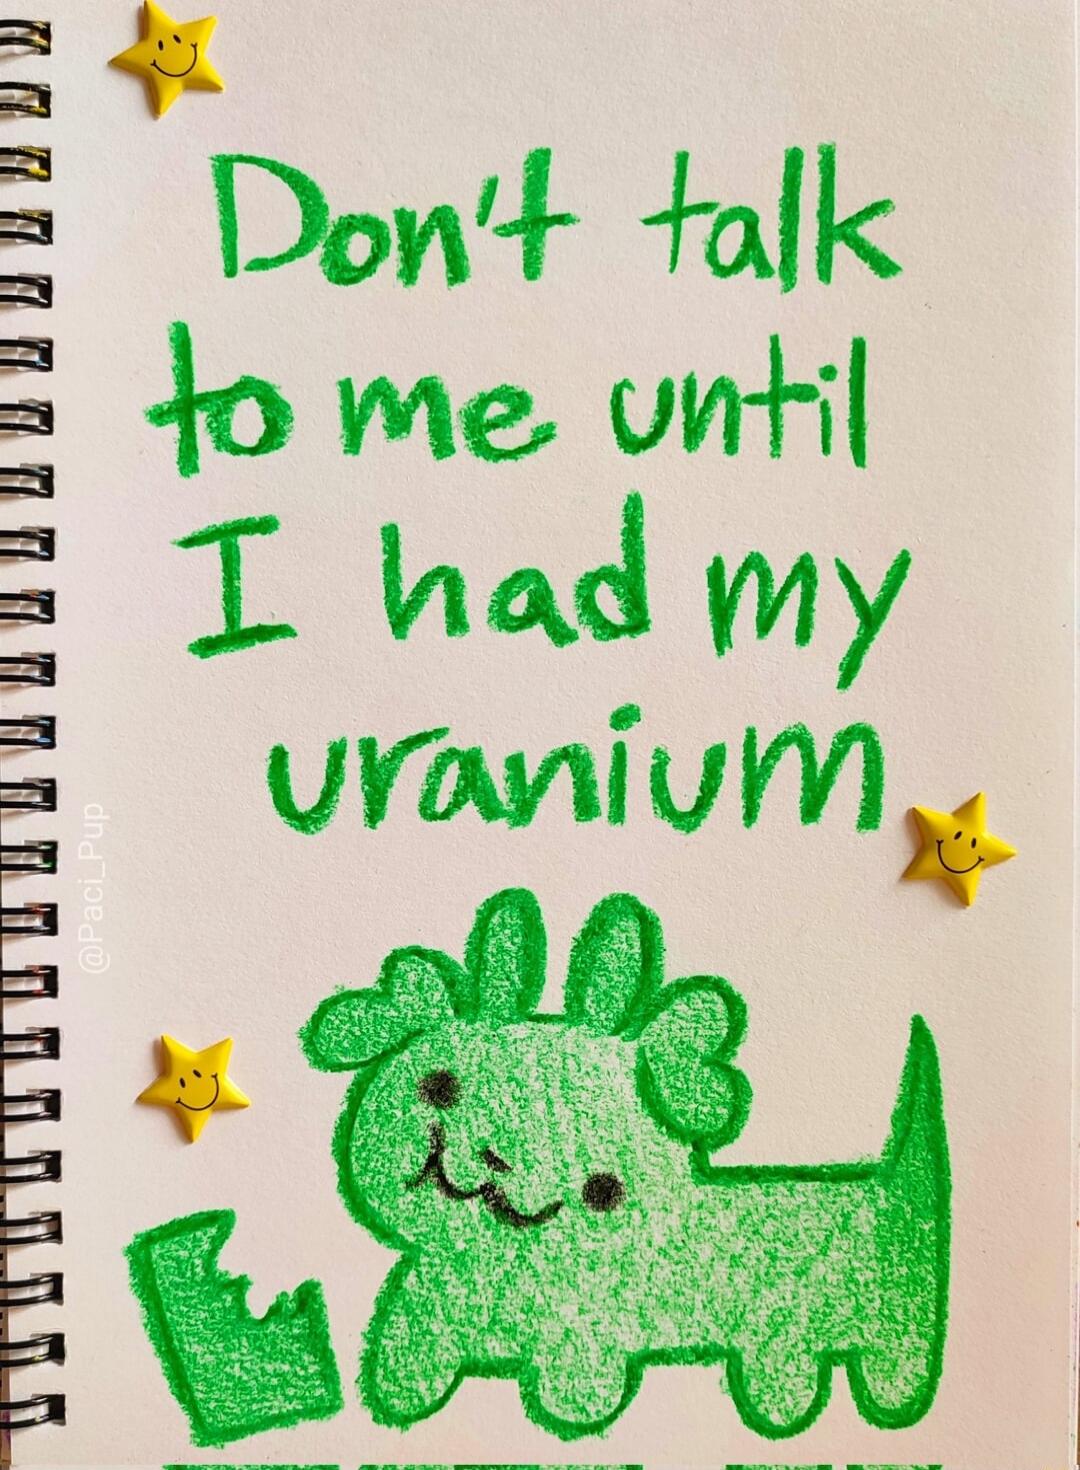 Don't talk
to me until
I had my
uranium
@Paci_Pup